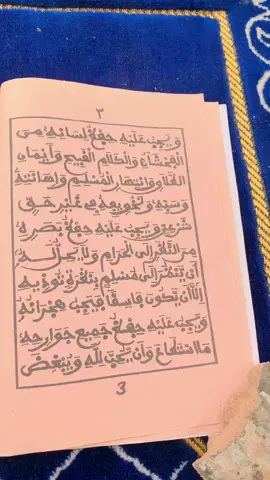 ٣
وَيَجِبُ عَلَيْهِ حِفْظُ لِسَانِهِ مِنَ
الْفَحْشَاءِ وَالْكَلَامِ الْقَبِيحِ وَأَيْمَانِ
الطَّلَاقِ وَانْتِهَارِ الْمُسْلِمِ وَإِهَانَتِهِ
وَسَبِّهِ وَتَخْوِيفِهِ فِي غَيْرِ حَقٍّ
شَرْعِيٍّ وَيَجِبُ عَلَيْهِ حِفْظُ بَصَرِهِ
مِنَ النَّظَرِ إِلَى الْحَرَامِ وَلَا يَحِلُّ لَهُ
أَنْ يَنْظُرَ إِلَى مُسْلِمٍ بِنَظْرَةٍ تُؤْذِيهِ
إِلَّا أَنْ يَكُونَ فَاسِقًا فَيَجِبُ هِجْرَانُهُ
وَيَجِبُ عَلَيْهِ حِفْظُ جَمِيعِ جَوَارِحِهِ
مَا اسْتَطَاعَ وَأَنْ يُحِبَّ لِلَّهِ وَيُبْغِضَ
3